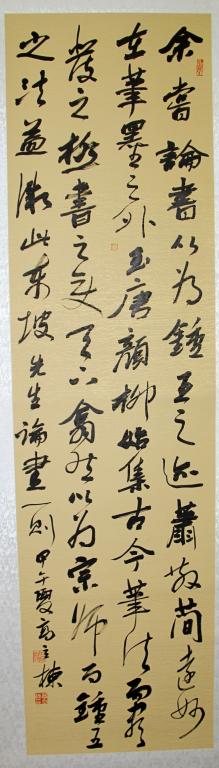 余嘗論書以為鍾王之迹蕭散簡遠妙
在筆墨之外至唐顏柳始集古今筆法而盡
發之極書之變天下翕然以為宗師而鍾王
之法益微此東坡先生論書一則甲午夏高立棟